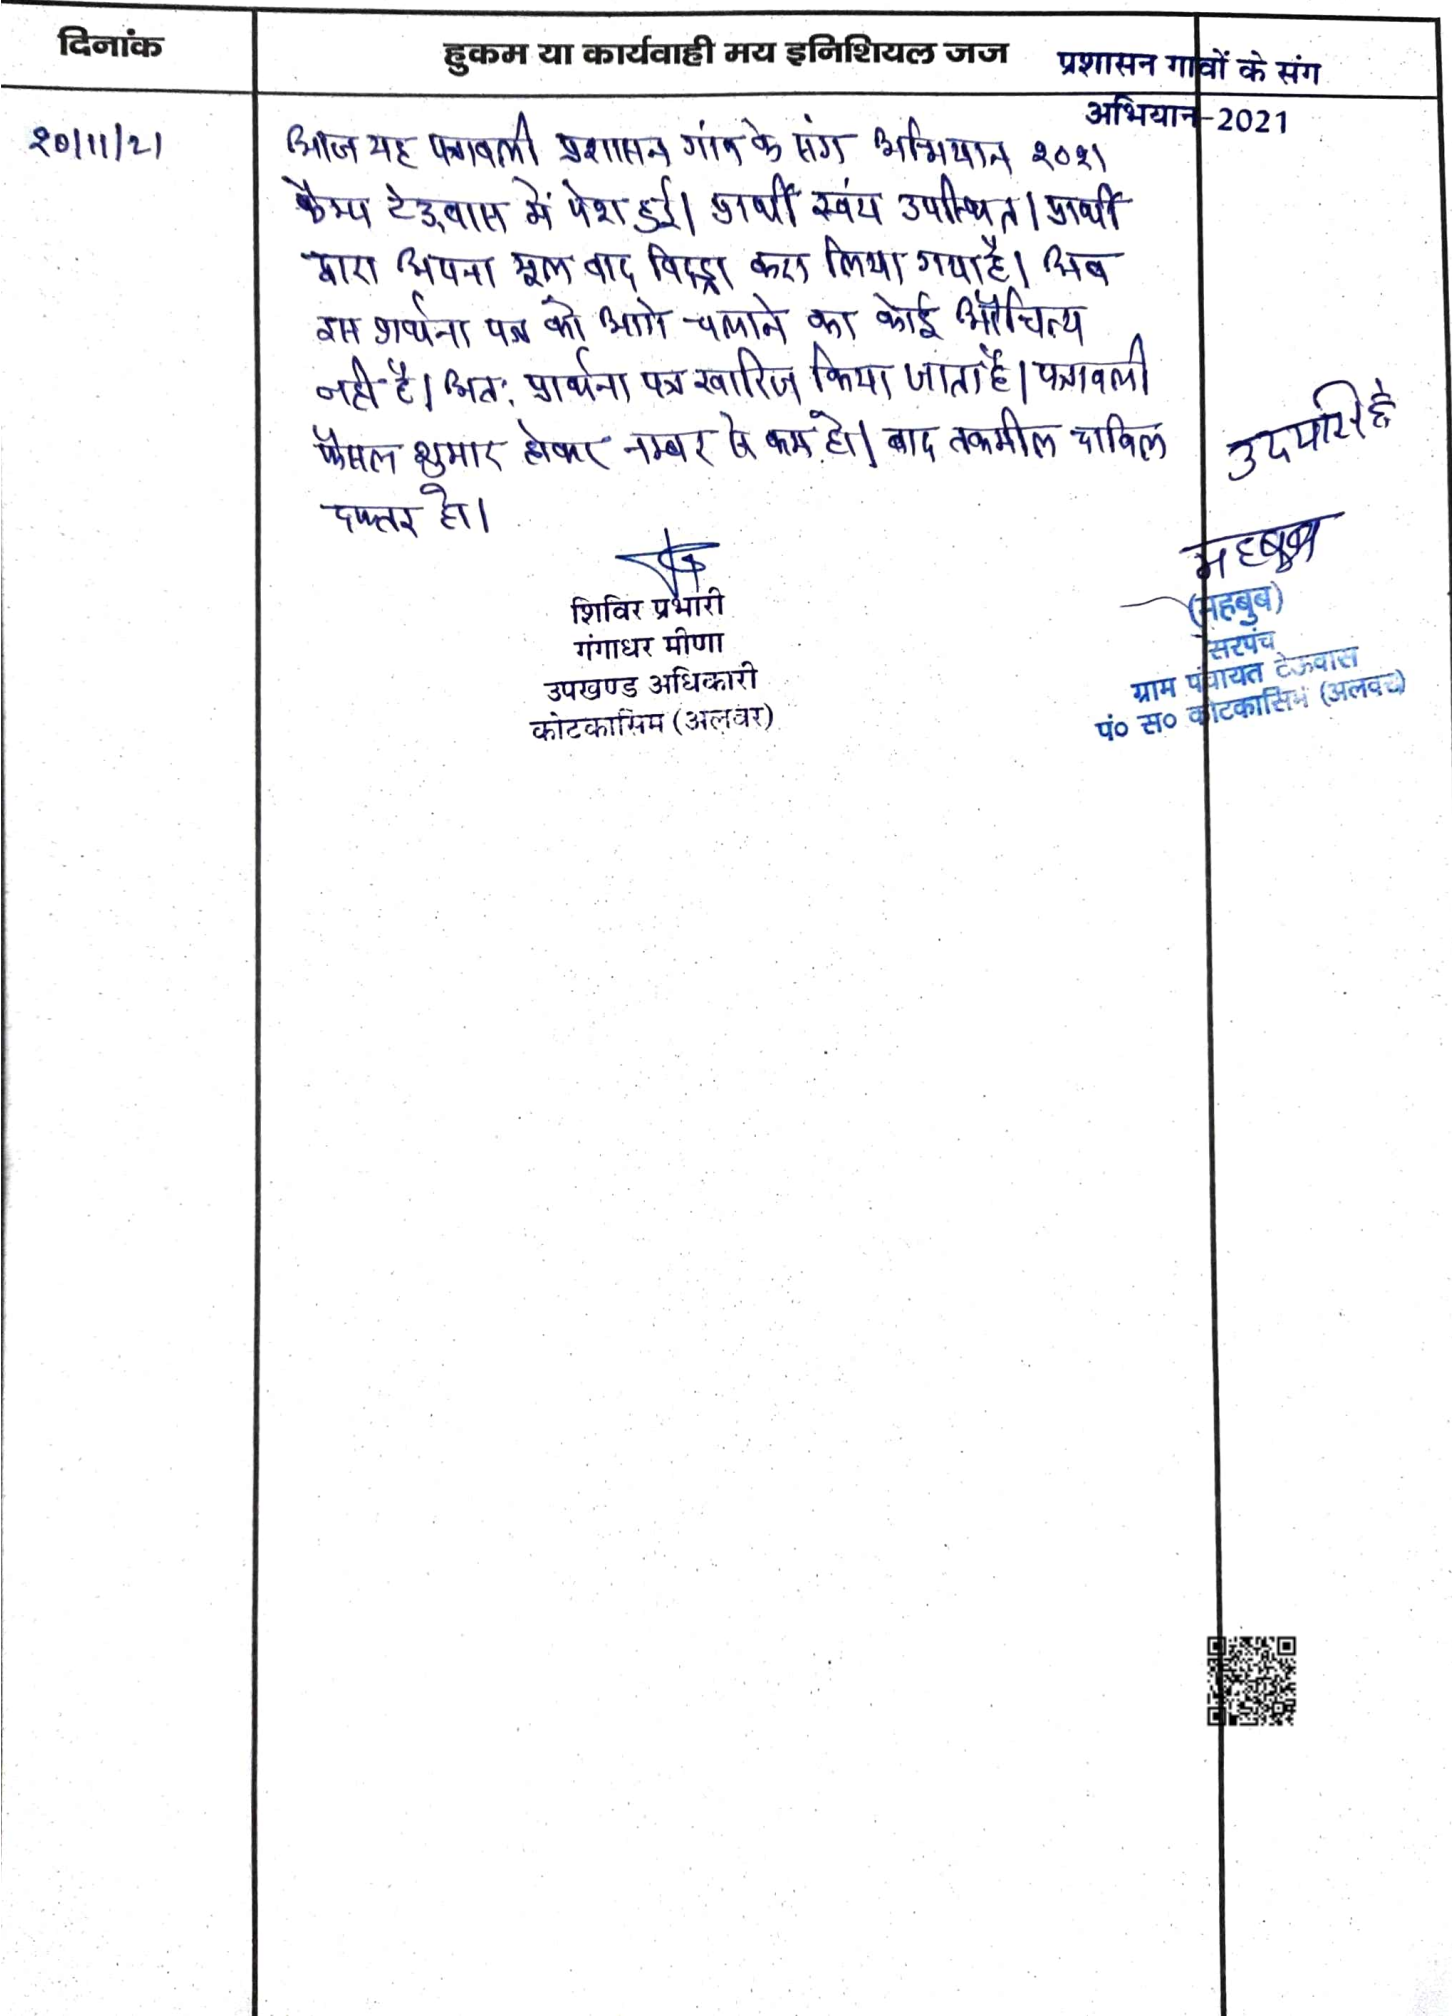 दिनांक
हुकम या कार्यवाही मय इनिशियल जज
प्रशासन गावों के संग
अभियान-2021
२०/11/21
आज यह पत्रावली प्रशासन गांव के संग अभियान २०२१
कैम्प टेऊवास में पेश हुई। प्रार्थी स्वंय उपस्थित। प्रार्थी
द्वारा अपना मूल वाद विड्रा करा लिया गया है। अब
इस प्रार्थना पत्र को आगे चलाने का कोई औचित्य
नही है। अत: प्रार्थना पत्र खारिज किया जाता है। पत्रावली
फैसल शुमार होकर नम्बर से कम हो। बाद तकमील दाखिल
दफ्तर हो।
शिविर प्रभारी
गंगाधर मीणा
उपखण्ड अधिकारी
कोटकासिम (अलवर)
महबुब
(महबुब)
सरपंच
ग्राम पंचायत टेऊवास
पं० स० कोटकासिम (अलवर)